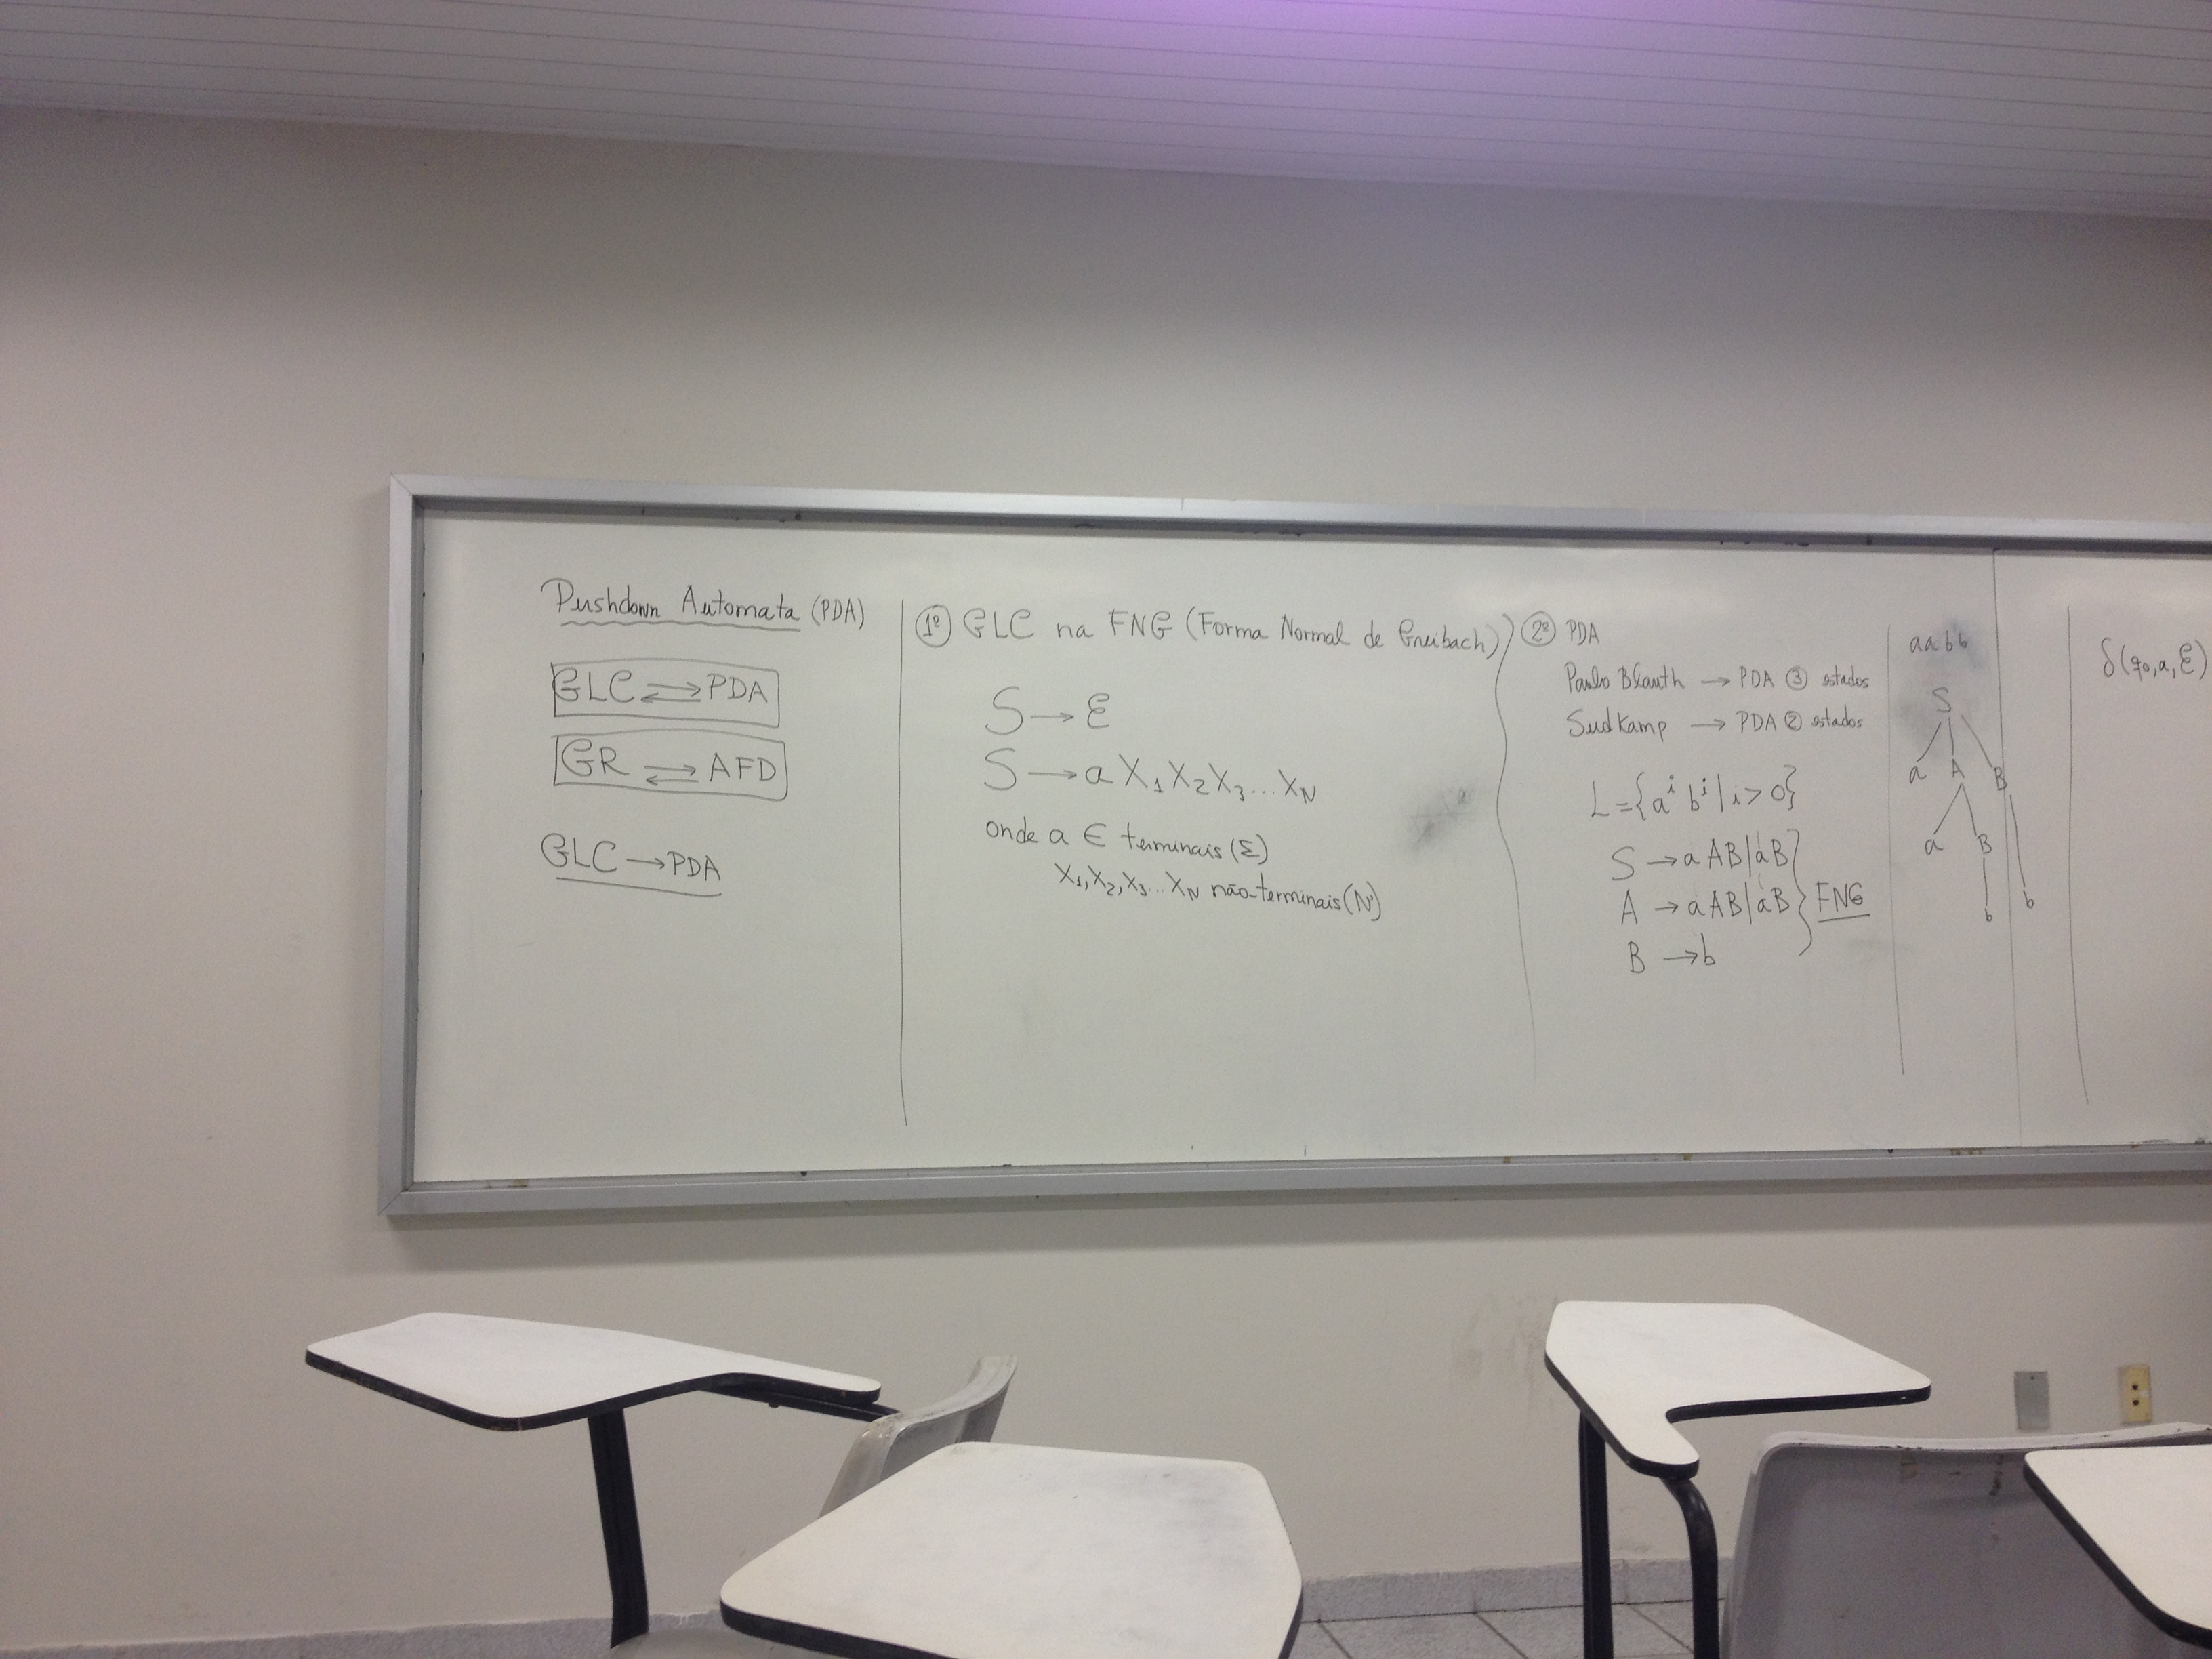 Pushdown Automata (PDA)
GLC ⇄ PDA
GR ⇄ AFD
GLC → PDA
1º GLC na FNG (Forma Normal de Greibach)
S → ε
S → a X₁ X₂ X₃ ... X_N
onde a ∈ terminais (Σ)
X₁, X₂, X₃ ... X_N não-terminais (N)
2º PDA
Paulo Blauth → PDA 3 estados
Sudkamp → PDA 2 estados
L = {aⁱ bⁱ | i > 0}
S → a AB | aB
A → a AB | aB } FNG
B → b
aabb
S
a A B
a B
b b
δ(q₀, a, ε)